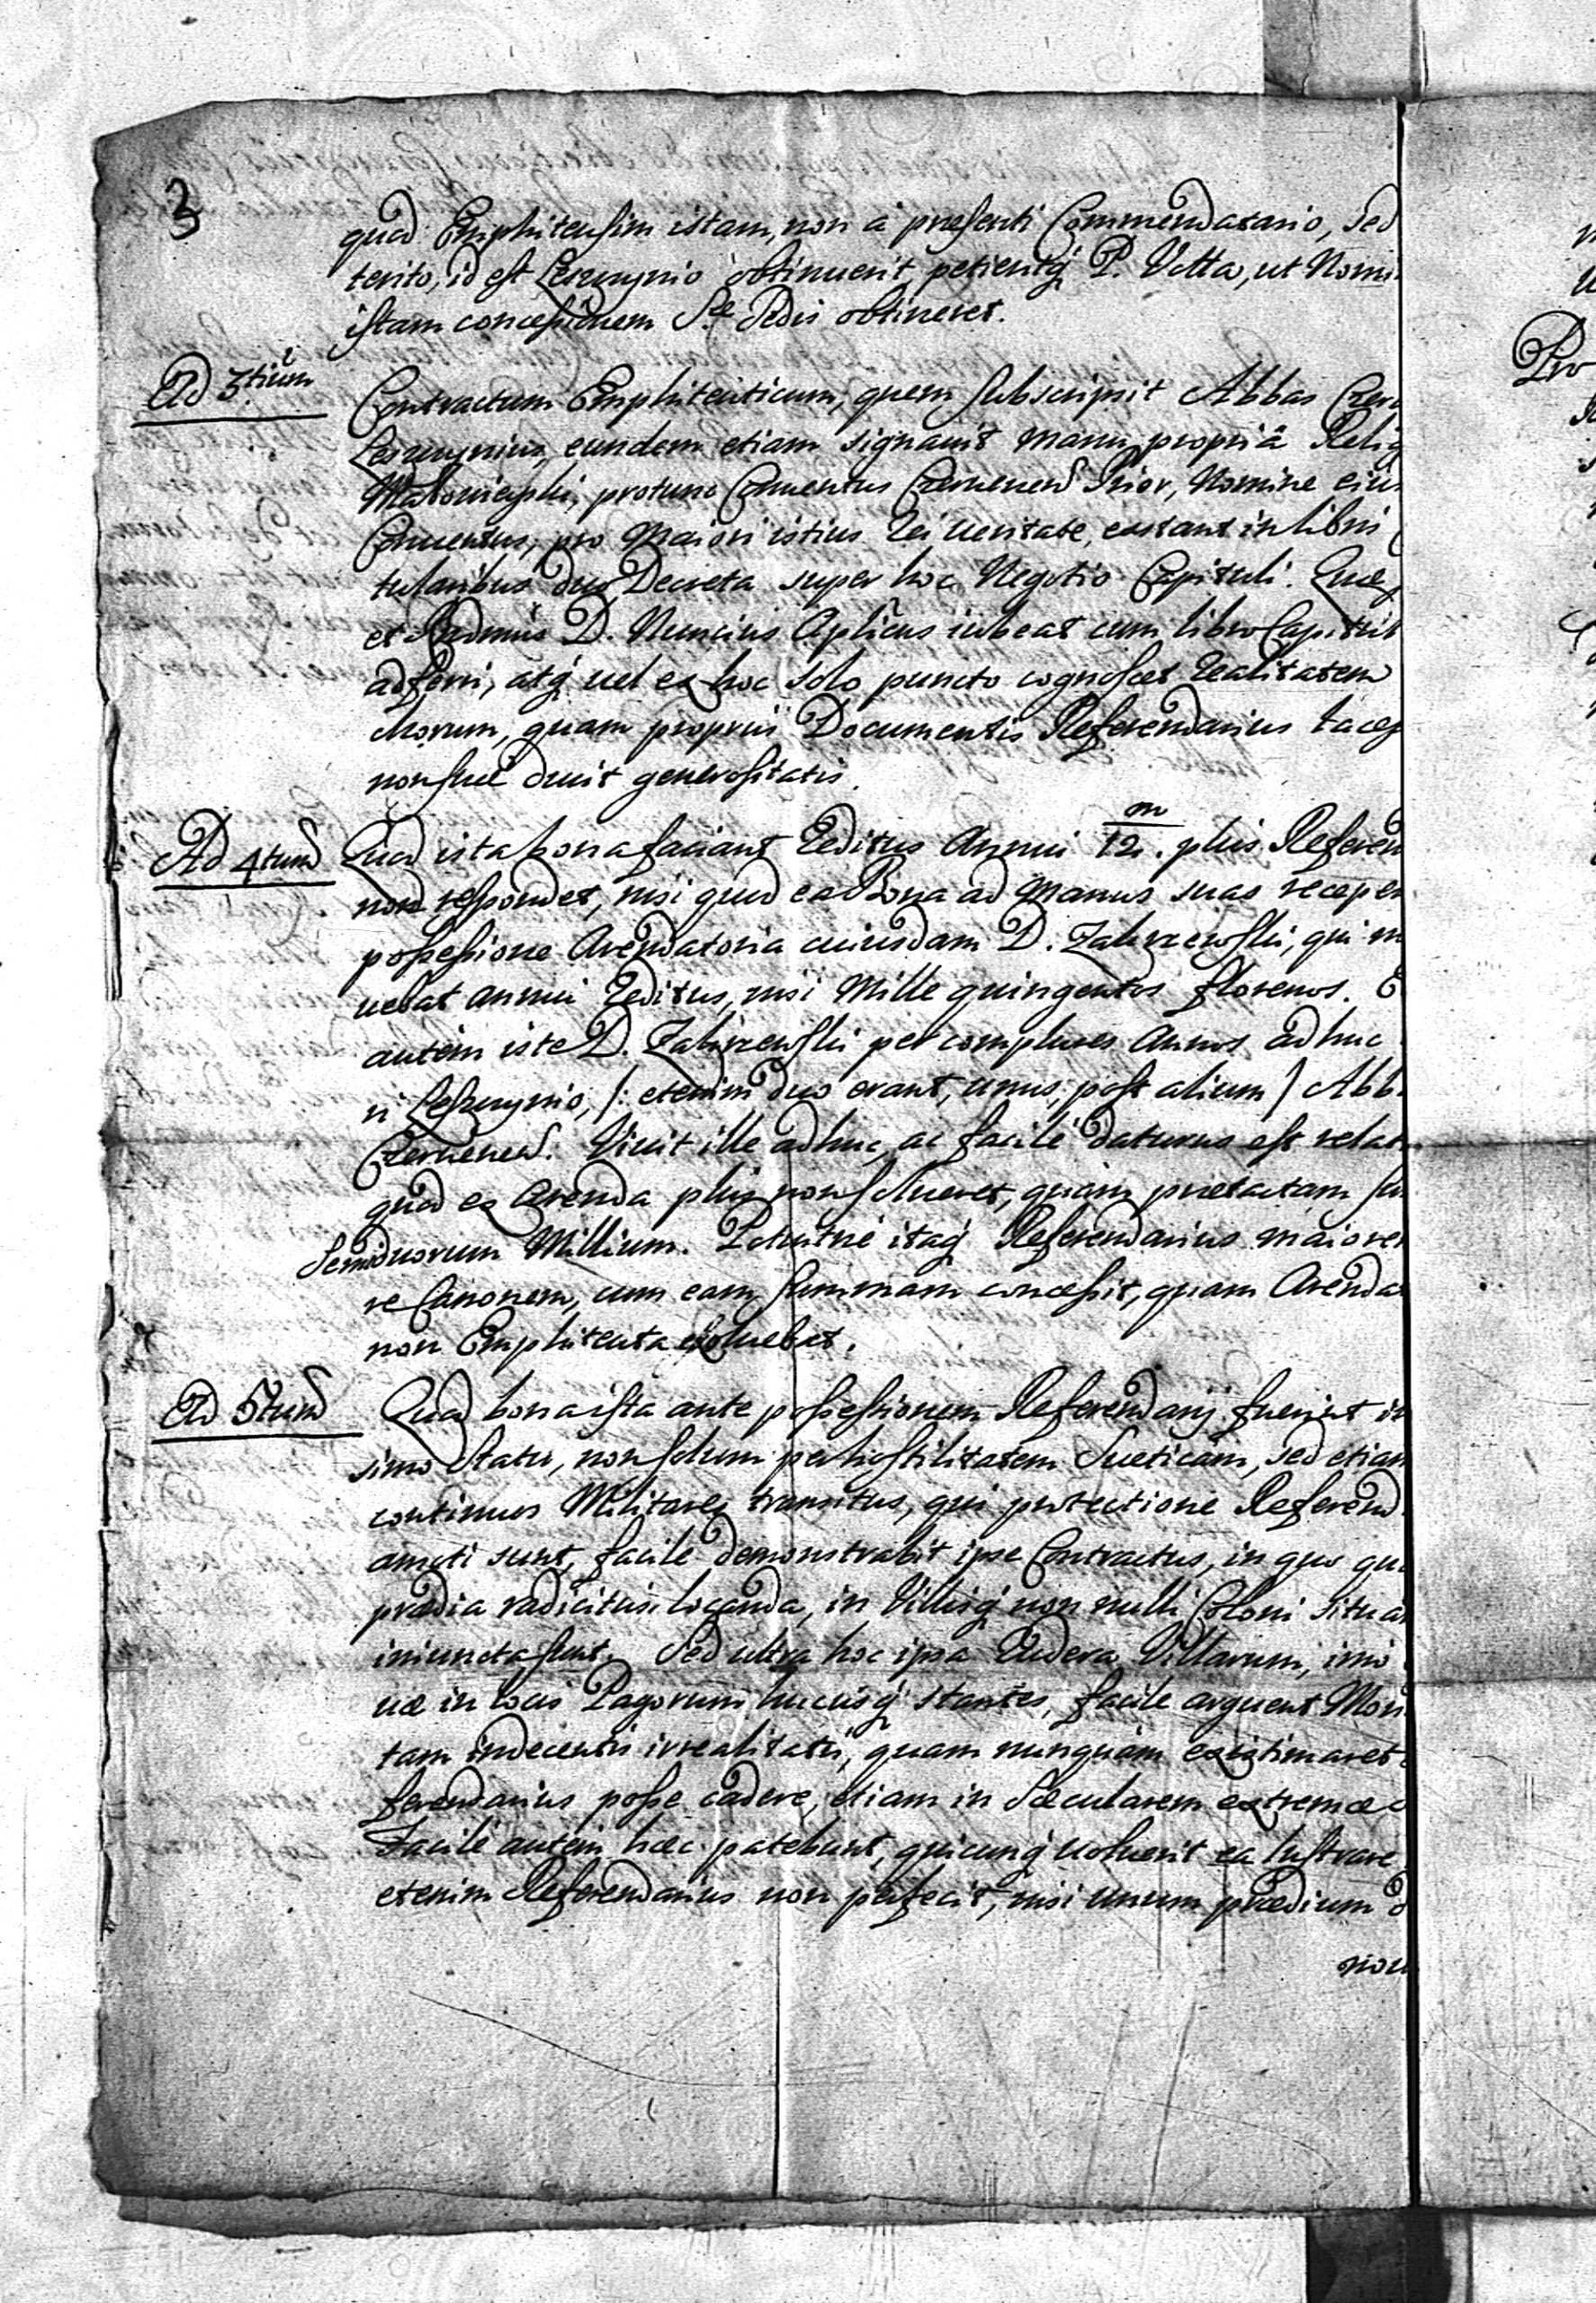 3
quod Emphiteusim istam, non a præsenti Commendatario, sed
terito, id est Leszczynio obtinuerit petieritq P. Votta, ut Nomi
istam concessionem Sæ Sedis obtineret.
Ad 3tium
Contractum Emphiteuticum, quem subscripsit Abbas
Leszczynius, eundem etiam signauit manu propriâ Relig
protunc Conuentus Prior, Nomine eius
Conuentus, pro Maiori istius rei ueritate, extant in libris
tularibus duo Decreta super hoc Negotio Capituli. Quæ
et Rndmus D. Nuncius Aplicus iubeat cum libro Capitul
adferri, atq uel ex hoc solo puncto cognoscet realitatem
chorum, quam propriis Documentis Referendarius
non suæ ducit generositatis.
Ad 4tum
Quod ista bona faciant Reditus Annui 12 m. plus Referen
non respondet, nisi quod ea Bona ad Manus suas recepe
possessione Arendatoria cuiusdam D. Zakrzewski, qui
uebat annui Reditus, nisi Mille quingentos florenos.
autem iste D. Zakrzewski per complures Annos adhuc
ri Leszczynio, /: etenim duo erant, unus, post alium / Abb
Viuit ille adhuc, ac facilè daturus est relat
quod ex Arenda plus non solueret, quam prætactam su
Semiduorum Millium. Potuitnè itaq Referendarius maiorem
re Canonem, cum eam summam concessit, quam Arenda
non Emphiteuta exoluebat.
Ad 5tum
Quod bona ista ante possessionem Referendarij fuerint in
simo Statu, non solum per hostilitatem Sueticam, sed etiam
continuos Militares transitus, qui protectione Referend
amoti sunt, facile demonstrabit ipse Contractus, in quo
prædia radicitus locanda, in Villisq non nulli Coloni situa
iniuncta sunt. Sed ultra hoc ipsa Rudera Villarum, imo
uæ in locis Pagorum hucusq stantes, facile arguent Mon
tam indecentis irrealitatis, quam nunquam existimaret
ferendarius posse cadere, etiam in Sæcularem extremæ
Facilè autem hæc patebunt, quicunq uoluerit ea lustrare
etenim Referendarius non perfecit, nisi unum prædium
non